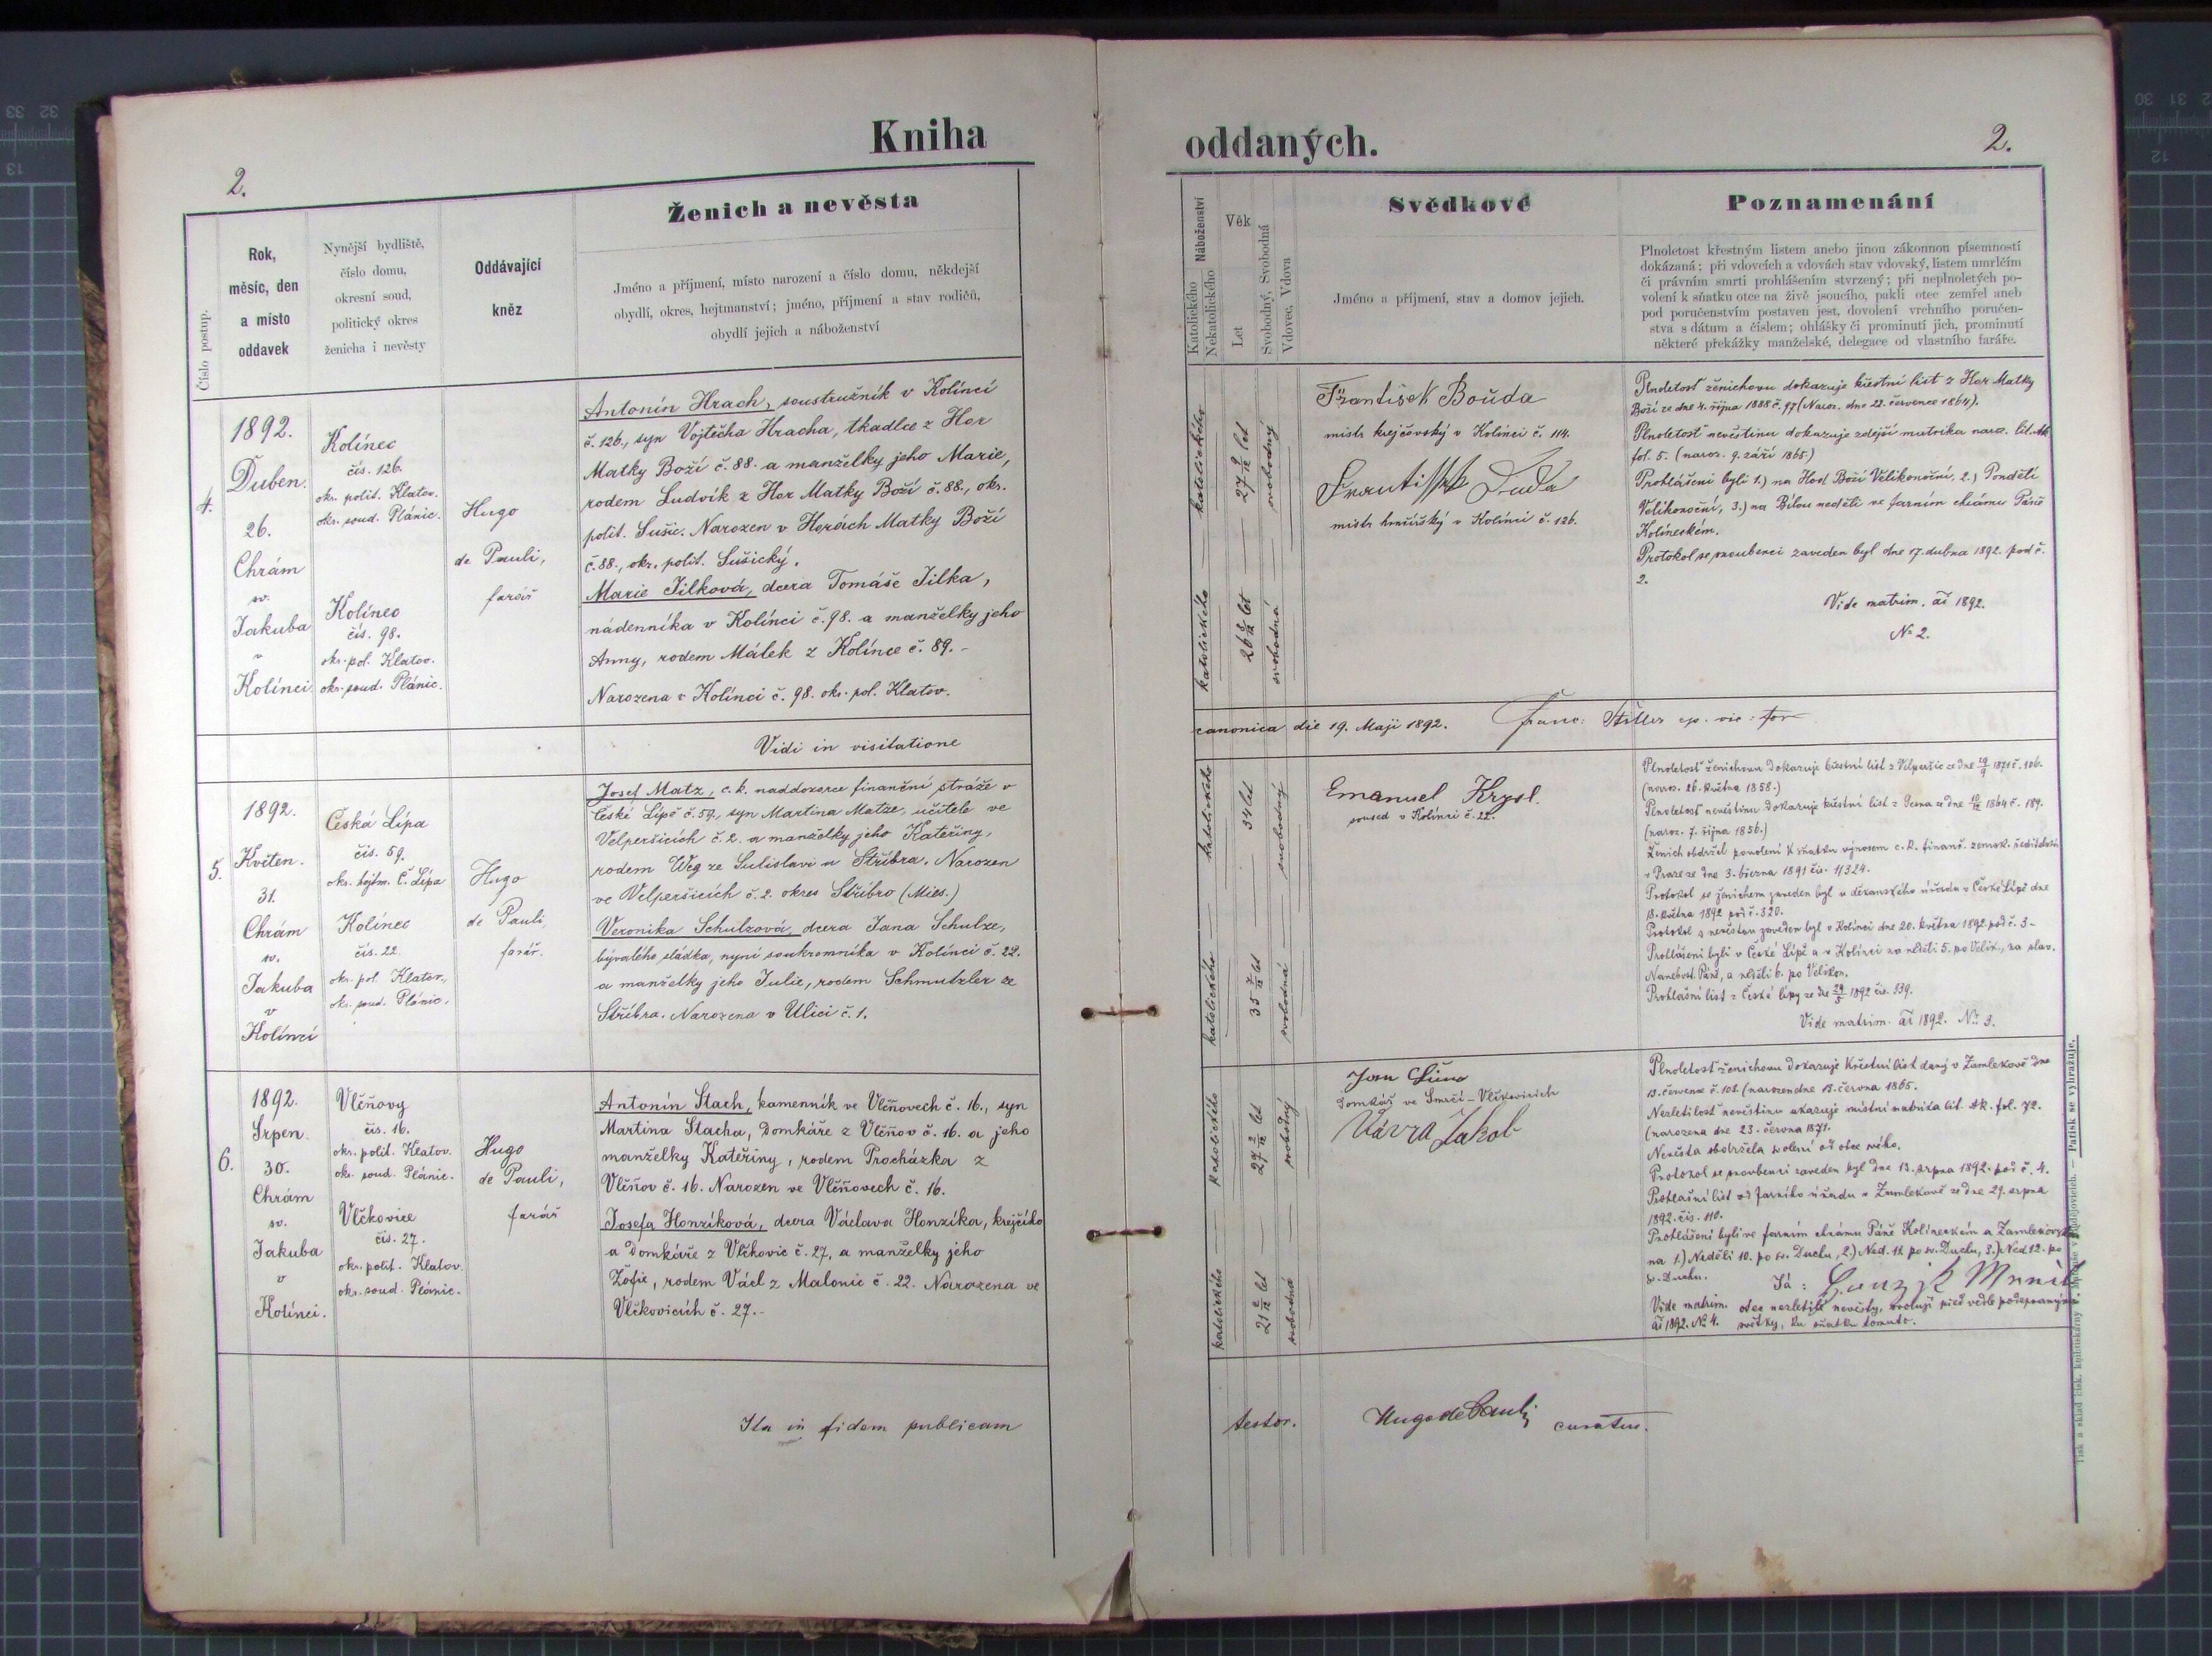 Kniha
oddaných.
2.
2.
Číslo postup.
Rok,
měsíc, den
a místo
oddavek
Nynější bydliště,
číslo domu,
okresní soud,
politický okres
ženicha i nevěsty
Oddávající
kněz
Ženich a nevěsta
Jméno a příjmení, místo narození a číslo domu, někdejší
obydlí, okres, hejtmanství; jméno, příjmení a stav rodičů,
obydlí jejich a náboženství
Náboženství
Katolického
Nekatolického
Věk
Let
Svobodný, Svobodná
Vdovec, Vdova
Svědkové
Jméno a příjmení, stav a domov jejich.
Poznamenání
Plnoletost křestným listem anebo jinou zákonnou písemností
dokázaná; při vdovcích a vdovách stav vdovský, listem umrlčím
či právním smrti prohlášením stvrzený; při neplnoletých po-
volení k sňatku otce na živě jsoucího, pakli otec zemřel aneb
pod poručenstvím postaven jest, dovolení vrchního poručen-
stva s dátum a číslem; ohlášky či prominutí jich, prominutí
některé překážky manželské, delegace od vlastního faráře.
4.
1892.
Duben.
26.
Chrám
sv.
Jakuba
v
Kolínci
Kolínec
čís. 126.
okr. polit. Klatov.
okr. soud. Plánic.
Kolínec
čís. 98.
okr. pol. Klatov.
okr. soud. Plánic.
Hugo
de Pauli,
farář
Antonín Hrach, soustružník v Kolínci
č. 126., syn Vojtěcha Hracha, tkadlce z Hor
Matky Boží č. 88. a manželky jeho Marie,
rodem Ludvík z Hor Matky Boží č. 88., okr.
polit. Sušic. Narozen v Horách Matky Boží
č. 88., okr. polit. Sušický.
Marie Jílková, dcera Tomáše Jílka,
nádenníka v Kolínci č. 98. a manželky jeho
Anny, rodem Málek z Kolínce č. 89. -
Narozena v Kolínci č. 98. okr. pol. Klatov.
katolického
27 9/12 let
svobodný
katolického
let
svobodná
František Bouda
mistr krejčovský v Kolínci č. 114.
František Duda
mistr v Kolínci č. 126.
Plnoletost ženichovu dokazuje křestní list z Hor Matky
Boží ze dne 4. října 1888 č. 97 (Naroz. dne 22. července 1864).
Plnoletost nevěstinu dokazuje zdejší matrika naroz. lit.
fol. 5. (naroz. 9. září 1865)
Prohlášeni byli 1.) na Hod Boží Velikonoční, 2.) Pondělí
Velikonoční, 3.) na Bílou neděli ve farním chrámu Páně
Kolineckém.
Protokol se snoubenci zaveden byl dne 17. dubna 1892. pod č.
2.
Vide matrim. ai 1892.
No 2.
Vidi in visitatione
canonica die 19. Maji 1892. Franc:
5.
1892.
Květen.
31.
Chrám
sv.
Jakuba
v
Kolínci
Česká Lípa
čís. 59.
okr. hejtm. Č. Lípa
Kolínec
čís. 22.
okr. pol. Klatov.,
ok. soud. Plánic.
Hugo
de Pauli
farář.
Josef Matz, c. k. naddozorce finanční stráže v
České Lípě č. 59, syn Martina Matze, učitele ve
Velperšicích č. 2. a manželky jeho Kateřiny,
rodem Weg ze Sulislavi u Stříbra. Narozen
ve Velperšicích č. 2. okres Stříbro (Mies.)
Veronika Schulzová, dcera Jana Schulze,
bývalého sládka, nyní soukromníka v Kolínci č. 22.
a manželky jeho Julie, rodem Schmutzler ze
Stříbra. Narozena v Ulici č. 1.
katolického
34 let
svobodný
katolického
35 let
svobodná
Emanuel Krysl.
soused v Kolínci č. 22.
Plnoletost ženichovu dokazuje křestní list z Velperšic ze dne 1871 č. 106.
(naroz. 26. května 1858.)
Plnoletost nevěstinu dokazuje křestní list z dne 1864 č. 189.
(naroz. 7. října 1856.)
Ženich obdržel povolení k sňatku výnosem c. k. finanč. zemsk. ředitelství
v Praze ze dne 3. března 1891 čís. 11324.
Protokol se ženichem zaveden byl u děkanského úřadu v České Lípě dne
května 1892 pod č. 320.
Protokol s nevěstou zaveden byl v Kolínci dne 20. května 1892. pod č. 3 -
Prohlášeni byli v České Lípě a v Kolínci na neděli 5. po Velik., na slav.
Nanebevst. Páně, a neděli 6. po Velikon.
Prohlašní list z České lípy ze dne 29/5 1892 čís. 339.
Vide matrim. ai 1892. No 3.
6.
1892.
Srpen.
30.
Chrám
sv.
Jakuba
v
Kolínci.
Vlčňovy
čís. 16.
okr. polit. Klatov.
okr. soud. Plánic.
Vlčkovice
čís. 27.
okr. polit. Klatov.
okr. soud. Plánic.
Hugo
de Pauli,
farář
Antonín Stach, kamenník ve Vlčňovech č. 16., syn
Martina Stacha, domkáře z Vlčňov č. 16. a jeho
manželky Kateřiny, rodem Procházka z
Vlčňov č. 16. Narozen ve Vlčňovech č. 16.
Josefa Honzíková, dcera Václava Honzíka, krejčího
a domkáře z Vlčkovic č. 27, a manželky jeho
Žofie, rodem Václ z Malonic č. 22. Narozena ve
Vlčkovicích č. 27.-
katolického
27 2/12 let
svobodný
katolického
21 2/12 let
svobodná
Jan
domkář ve Smrčí - Vlčkovicích
Vávra Jakob
Plnoletost ženichovu dokazuje křestní list daný v Zamlekově dne
13. července č. 101. (narozen dne 13. června 1865.
Nezletilost nevěstinu ukazuje místní matrika lit. fol. 72.
(narozena dne 23. června 1871.
Nevěsta obdržela svolení od otce svého.
Protokol se snoubenci zaveden byl dne 13. srpna 1892. pod č. 4.
Prohlašní list od farního úřadu v Zamlekově ze dne 29. srpna
1892. čís. 110.
Prohlášeni byli ve farním chrámu Páně Kolineckém a
na 1.) Neděli 10. po sv. Duchu, 2.) Ned. 11. po sv. Duchu, 3.) Ned 12. po
sv. Duchu. Já:
Vide matrim. otec nezletilé nevěsty, svoluji před vedle podepsanými
ai 1892. No 4. svědky, ku sňatku tomuto.
Ita in fidem publicam
testor. Hugo de Pauli curatus.
Tisk a sklad tisk. knihtiskárny v Budějovicích. — Patisk se vyhražuje.